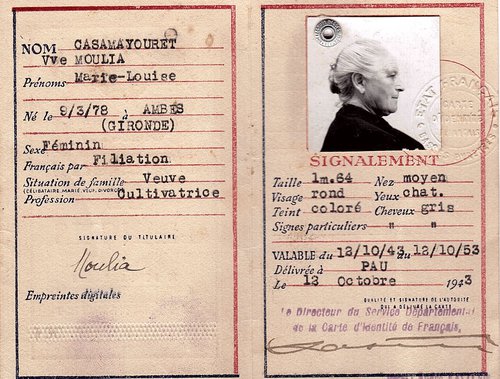 NOM CASAMAYOURET
Vve MOULIA
Prénoms Marie-Louise
Né le 9/3/78 à AMBÈS
(GIRONDE)
Sexe Féminin
Français par Filiation
Situation de famille Veuve
(CÉLIBATAIRE, MARIÉ, VEUF, DIVORCÉ)
Profession Cultivatrice
SIGNATURE DU TITULAIRE
Moulia
Empreintes digitales
ETAT FRANÇAIS
CARTE
D'IDENTITÉ
SIGNALEMENT
Taille 1m.64 Nez moyen
Visage rond Yeux chat.
Teint coloré Cheveux gris
Signes particuliers " "
VALABLE du 12/10/43 au 12/10/53
Délivrée à PAU
Le 12 Octobre 1943
QUALITÉ ET SIGNATURE DE L'AUTORITÉ
QUI A DÉLIVRÉ LA CARTE
Le Directeur du Service Départemental
de la Carte d'Identité de Français,